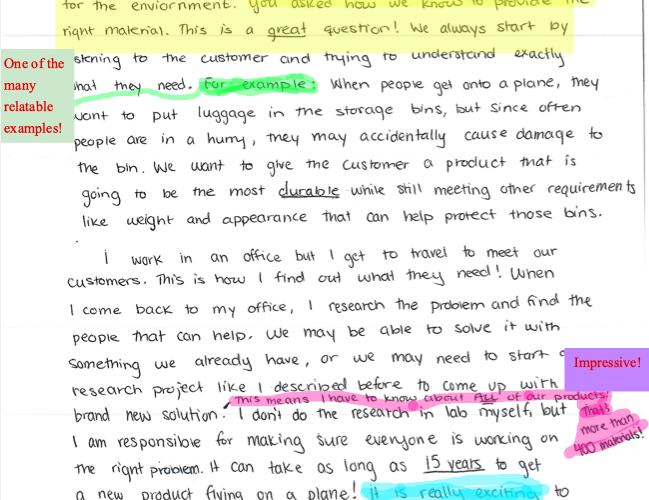 for the enviornment. You asked how we know to provide the
right material. This is a great question! We always start by
One of the
many
relatable
examples!
stening to the customer and trying to understand exactly
hat they need. For example: When people get onto a plane, they
want to put luggage in the storage bins, but since often
people are in a hurry, they may accidentally cause damage to
the bin. We want to give the customer a product that is
going to be the most durable while still meeting other requirements
like weight and appearance that can help protect those bins.
I work in an office but I get to travel to meet our
customers. This is how I find out what they need! When
I come back to my office, I research the problem and find the
people that can help. We may be able to solve it with
something we already have, or we may need to start
Impressive!
research project like I described before to come up with
This means I have to know about ALL of our products!
That's
more than
400 materials!
brand new solution. I don't do the research in lab myself, but
I am responsible for making sure everyone is working on
the right problem. It can take as long as 15 years to get
a new product flying on a plane! It is really exciting to